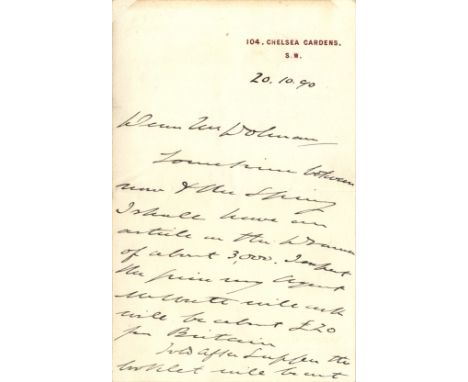 104, CHELSEA GARDENS,
S.W.
20.10.90
Dear Mr Dolman
Sometime between
now & the Spring
I shall have an
article on the Drama
of about 3,000. I expect
the price my agent
Mr Watt will ask
will be about £20
for Britain
Told after Supper the
booklet will be out